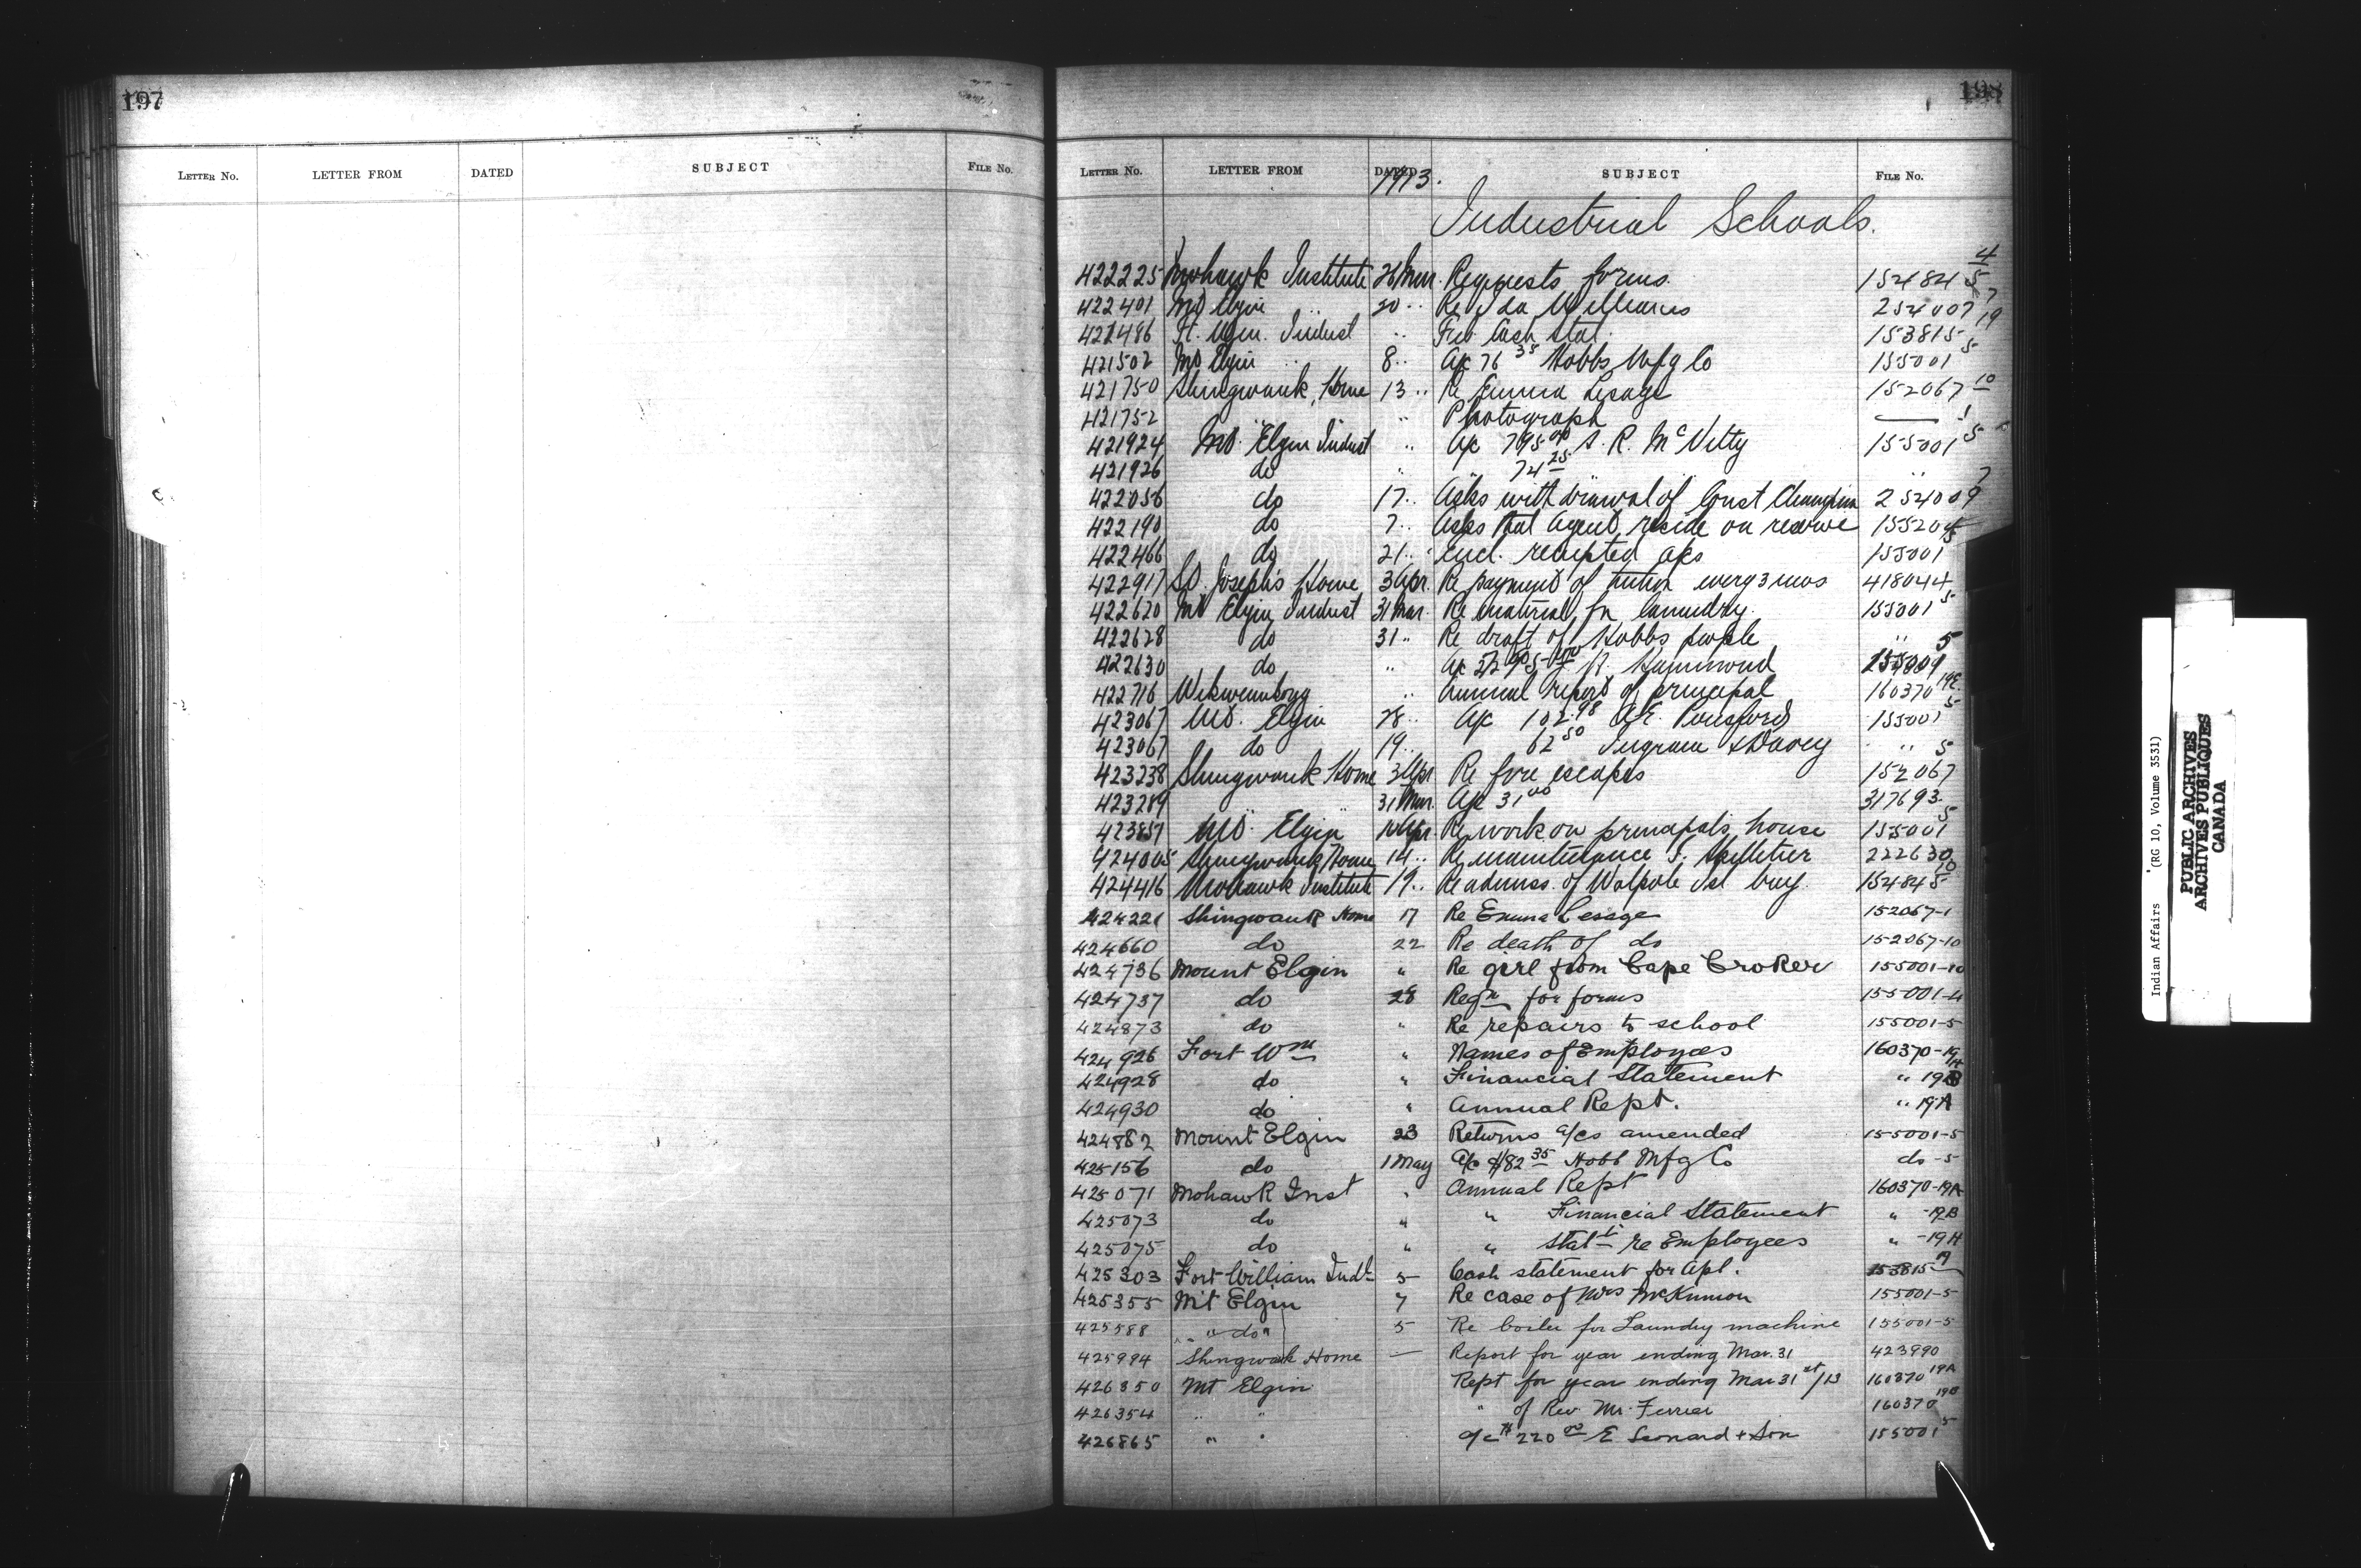 197
LETTER No. LETTER FROM DATED SUBJECT FILE No.
198
LETTER No. LETTER FROM DATED SUBJECT FILE No.
1913.
Industrial Schools.
422225 Mohawk Institute 26 Mar. Requests forms. 154845 4
422401 Mt Elgin 20 " Re Ida Williams 254007 7
421486 Ft. Wm. Indust " Feb Cash Stat. 153815 19
421502 Mt Elgin 8 " A/c 76 35 Hobbs Mfg Co 155001 5
421750 Shingwauk Home 13 " Re Emma Lesage 152067 10
421752 " Photograph — 1
421924 Mt. Elgin Indust " A/c 795 00 S. R. McVitty 155001 5
421926 do " 74 25 "
422056 do 17 " Asks withdrawal of Const Champion 254009 7
422190 do 7 " Asks that Agent reside on reserve 15520
422466 do 21 " Encl. receipted a/cs 155001 5
422917 St. Joseph's Home 3 Apr. Re payment of tuition every 3 mos 418044
422620 Mt Elgin Indust 31 Mar. Re material for laundry 155001 5
422628 do 31 " Re draft of Hobbs people " 5
422630 do " A/c R. Hammond
422716 Wikwemikong " Annual report of principal 160370 19E.
423067 Mt. Elgin 28 " A/c 102.98 A.E. Ponsford 155001 5
423067 do 19 " 62 50 Ingram & Davey " 5
423238 Shingwauk Home 3 Apr Re fire escapes 152067
423289 31 Mar. A/c 31 00 317693
423851 Mt. Elgin 10 Apr Re work on principal's house 155001 5
424005 Shingwauk Home 14 " Re maintenance S. Pelletier 222630
424416 Mohawk Institute 19 " Re admiss. of Walpole Isl boy. 154845 10
424221 Shingwauk Home 17 Re Emma Lesage 152067-1
424660 do 22 Re death of do 152067-10
424736 Mount Elgin " Re girl from Cape Croker 155001-10
424737 do 28 Reqn for forms 155001-4
424873 do " Re repairs to school 155001-5
424926 Fort Wm " Names of Employees 160370-19H
424928 do " Financial Statement " 19B
424930 do " Annual Rept. " 19A
424882 Mount Elgin 23 Returns a/cs amended 155001-5
425156 do 1 May A/c $82 35 Hobb Mfg Co do -5
425071 Mohawk Inst " Annual Rept 160370-19A
425073 do " " Financial Statement " -19B
425075 do " " Stat-t re Employees " -19H
425303 Fort William Indt 5 Cash statement for Apl. 153815 19
425355 Mt Elgin 7 Re case of Mrs McKinnon 155001-5
425588 " " do " 5 Re boiler for Laundry machine 155001-5
425994 Shingwauk Home — Report for year ending Mar. 31 423990
426350 Mt Elgin Rept for year ending Mar 31 st/13 160370 19A
426354 " " " of Rev. Mr. Ferrier 160370 19B
426865 " " a/c $220 00 E Leonard & Son 155001 5
Indian Affairs (RG 10, Volume 3531)
PUBLIC ARCHIVES
ARCHIVES PUBLIQUES
CANADA